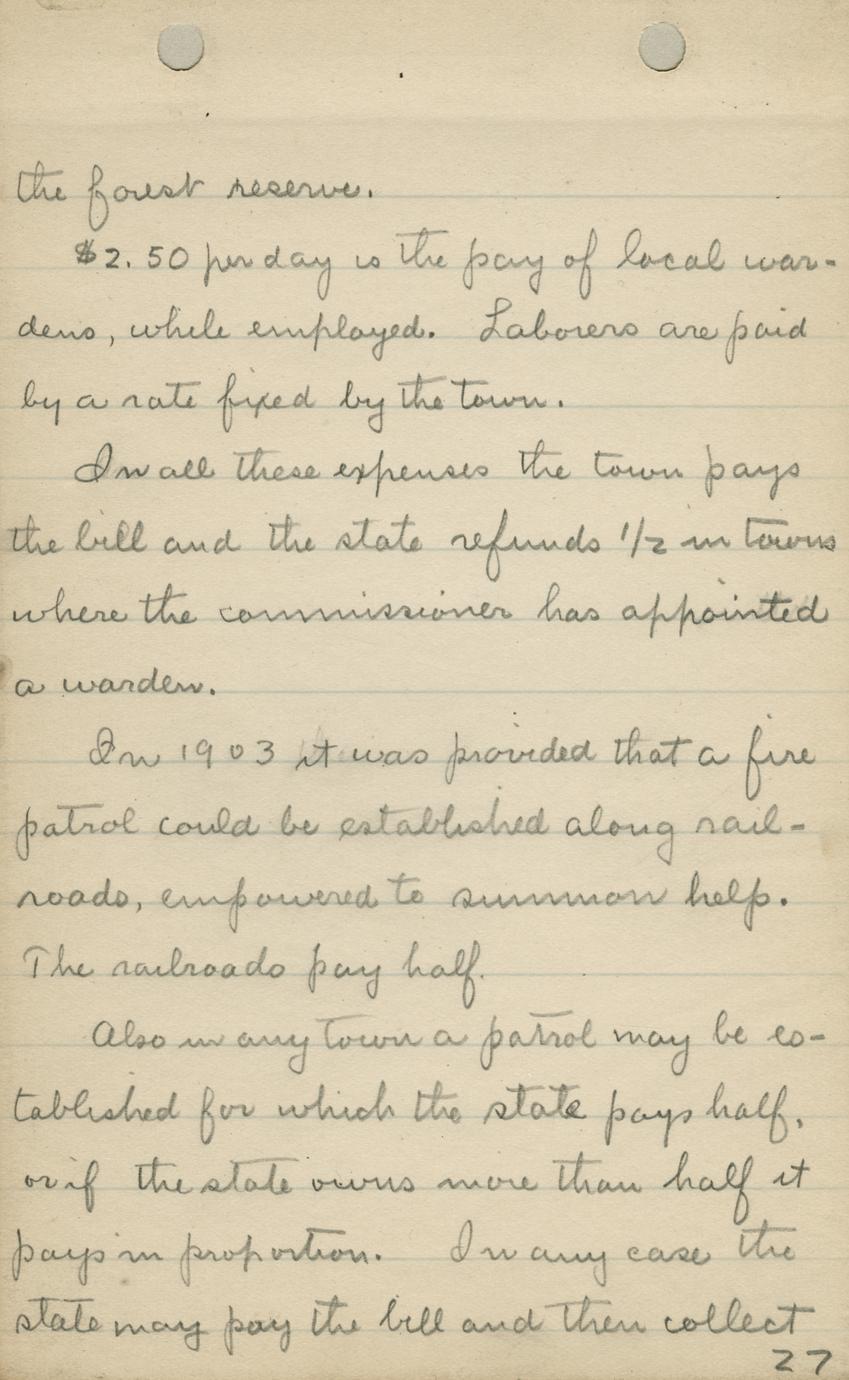 the forest reserve.
$2.50 per day is the pay of local war-
dens, while employed. Laborers are paid
by a rate fixed by the town.
In all these expenses the town pays
the bill and the state refunds 1/2 in towns
where the commissioner has appointed
a warden.
In 1903 it was provided that a fire
patrol could be established along rail-
roads, empowered to summon help.
The railroads pay half.
Also in any town a patrol may be es-
tablished for which the state pays half,
or if the state owns more than half it
pays in proportion. In any case the
state may pay the bill and then collect
27